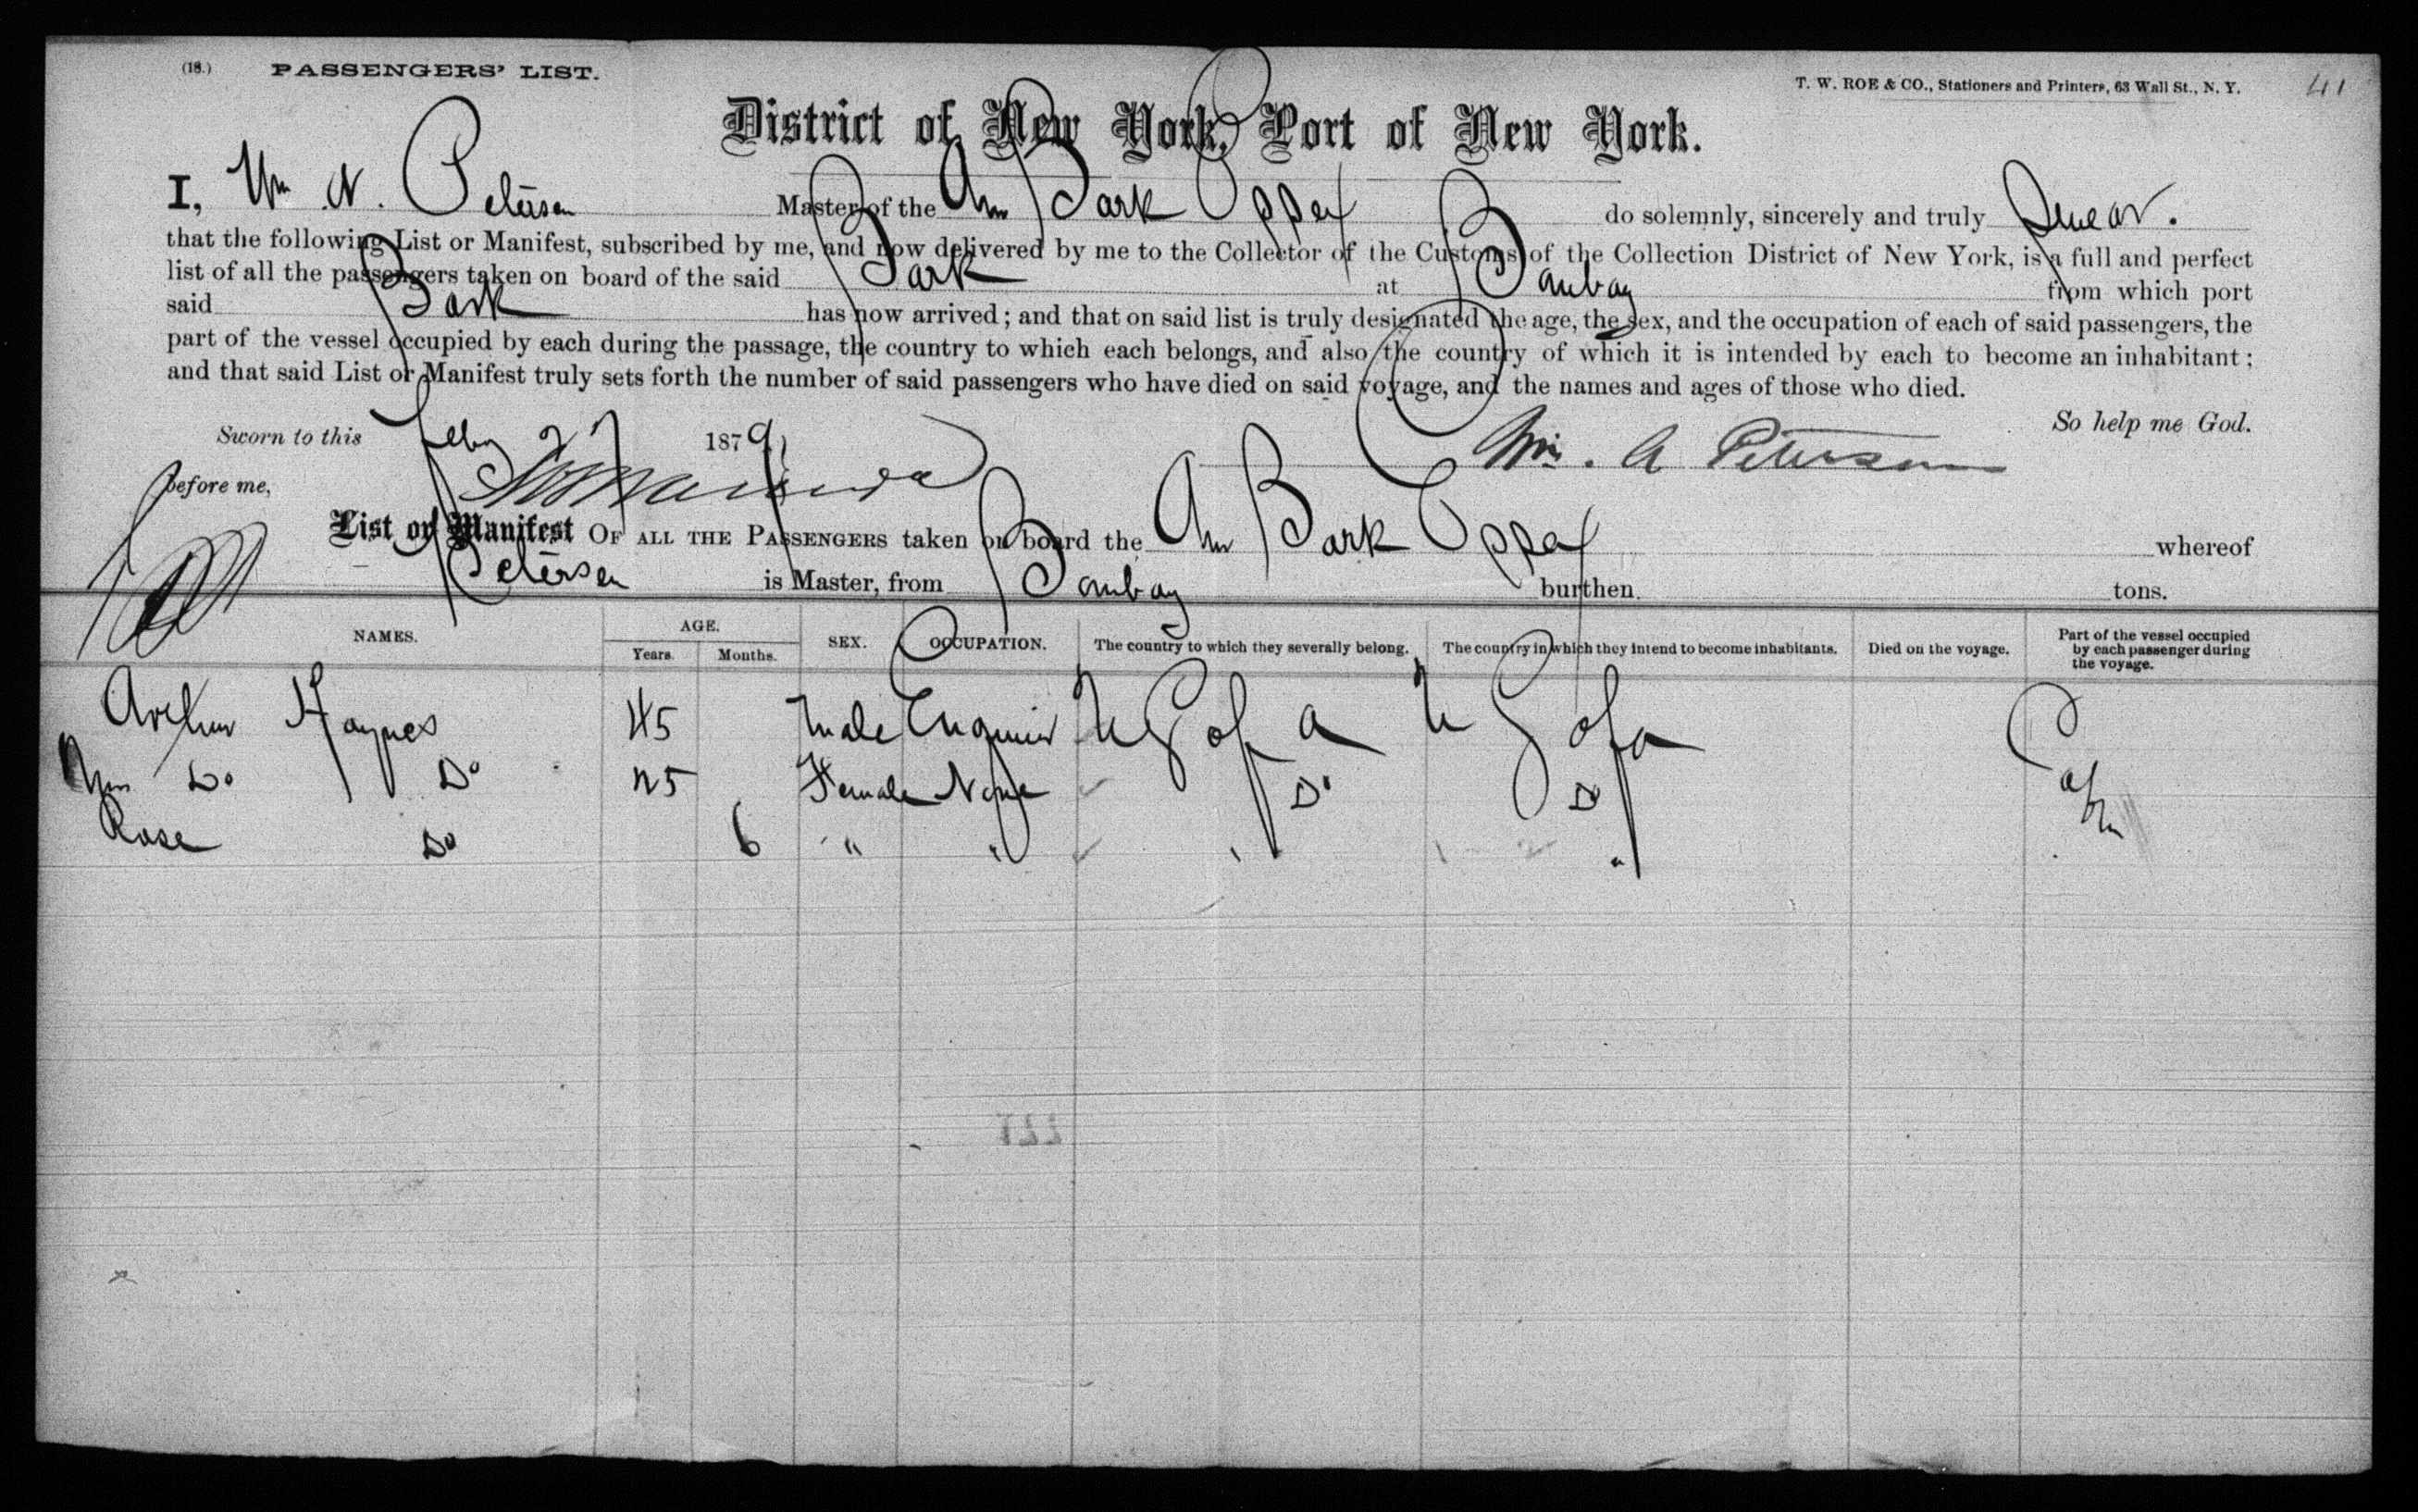 (18.) PASSENGERS' LIST. T. W. ROE & CO., Stationers and Printers, 63 Wall St., N. Y. 41
District of New York, Port of New York.
I, Wm N. Petersen Master of the Am Bark do solemnly, sincerely and truly Swear.
that the following List or Manifest, subscribed by me, and now delivered by me to the Collector of the Customs of the Collection District of New York, is a full and perfect
list of all the passengers taken on board of the said Bark at Bombay from which port
said Bark has now arrived; and that on said list is truly designated the age, the sex, and the occupation of each of said passengers, the
part of the vessel occupied by each during the passage, the country to which each belongs, and also the country of which it is intended by each to become an inhabitant;
and that said List or Manifest truly sets forth the number of said passengers who have died on said voyage, and the names and ages of those who died.
So help me God.
Sworn to this Feby 27 1879 Wm. A Petersen
before me,
List or Manifest OF ALL THE PASSENGERS taken on board the Am Bark whereof
Petersen is Master, from Bombay burthen tons.
NAMES. AGE. Years. Months. SEX. OCCUPATION. The country to which they severally belong. The country in which they intend to become inhabitants. Died on the voyage. Part of the vessel occupied by each passenger during the voyage.
Arthur Haynes 45 Male Engineer U S of a U S of a Cabin
Do Do 25 Female None Do Do
Rose Do 6 " " " "